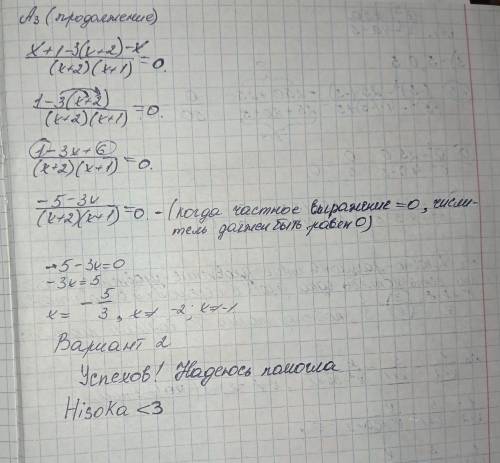 А3 (продолжение)
x+1-3(x+2)-x / (x+2)(x+1) = 0.
1-3(x+2) / (x+2)(x+1) = 0.
1-3x+6 / (x+2)(x+1) = 0.
-5-3x / (x+2)(x+1) = 0. - (когда частное выражение = 0, числи-
тель должен быть равен 0)
-5-3x=0
-3x=5
x= -5/3, x≠ -2; x≠-1
Вариант 2
Успехов! Надеюсь помогла
Hisoka <3